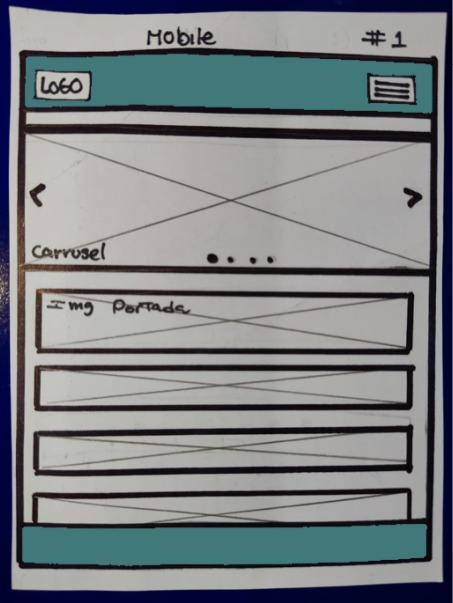 Mobile #1
LOGO
Carrusel
Img Portada